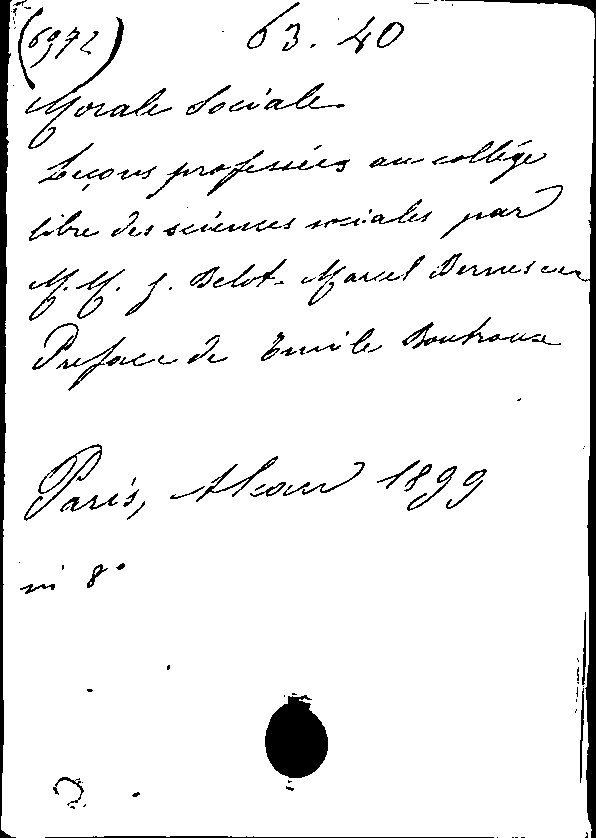 (6972) 63.40
Morale Sociale.
Leçons professées au collège
libre des sciences sociales par
M.M. G. Belot. Marcel Bernès
Preface de Emile Boutroux
Paris, Alcan 1899
in 8°